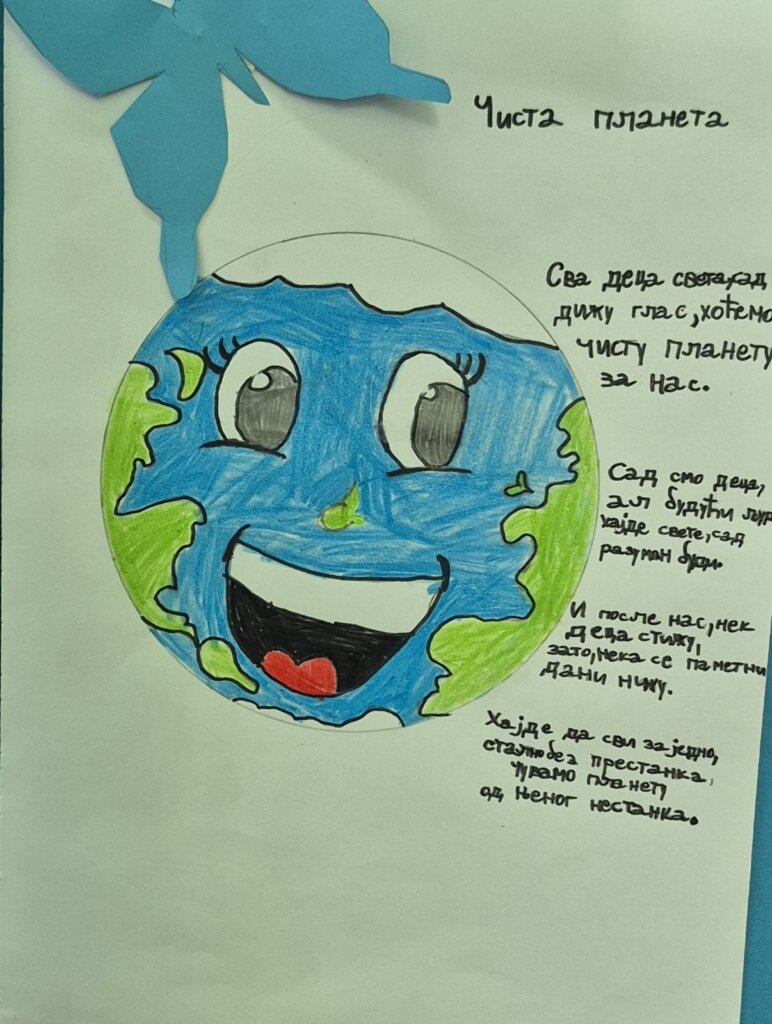 Чиста планета
Сва деца света, сад
дижу глас, хоћемо
чисту планету
за нас.
Сад смо деца,
ал будући људ
хајде свете, сад
разуман буди.
И после нас, нек
деца стижу,
зато, нека се паметни
дани нижу.
Хајде да сви заједно,
стално без престанка,
чувамо планету
од њеног нестанка.